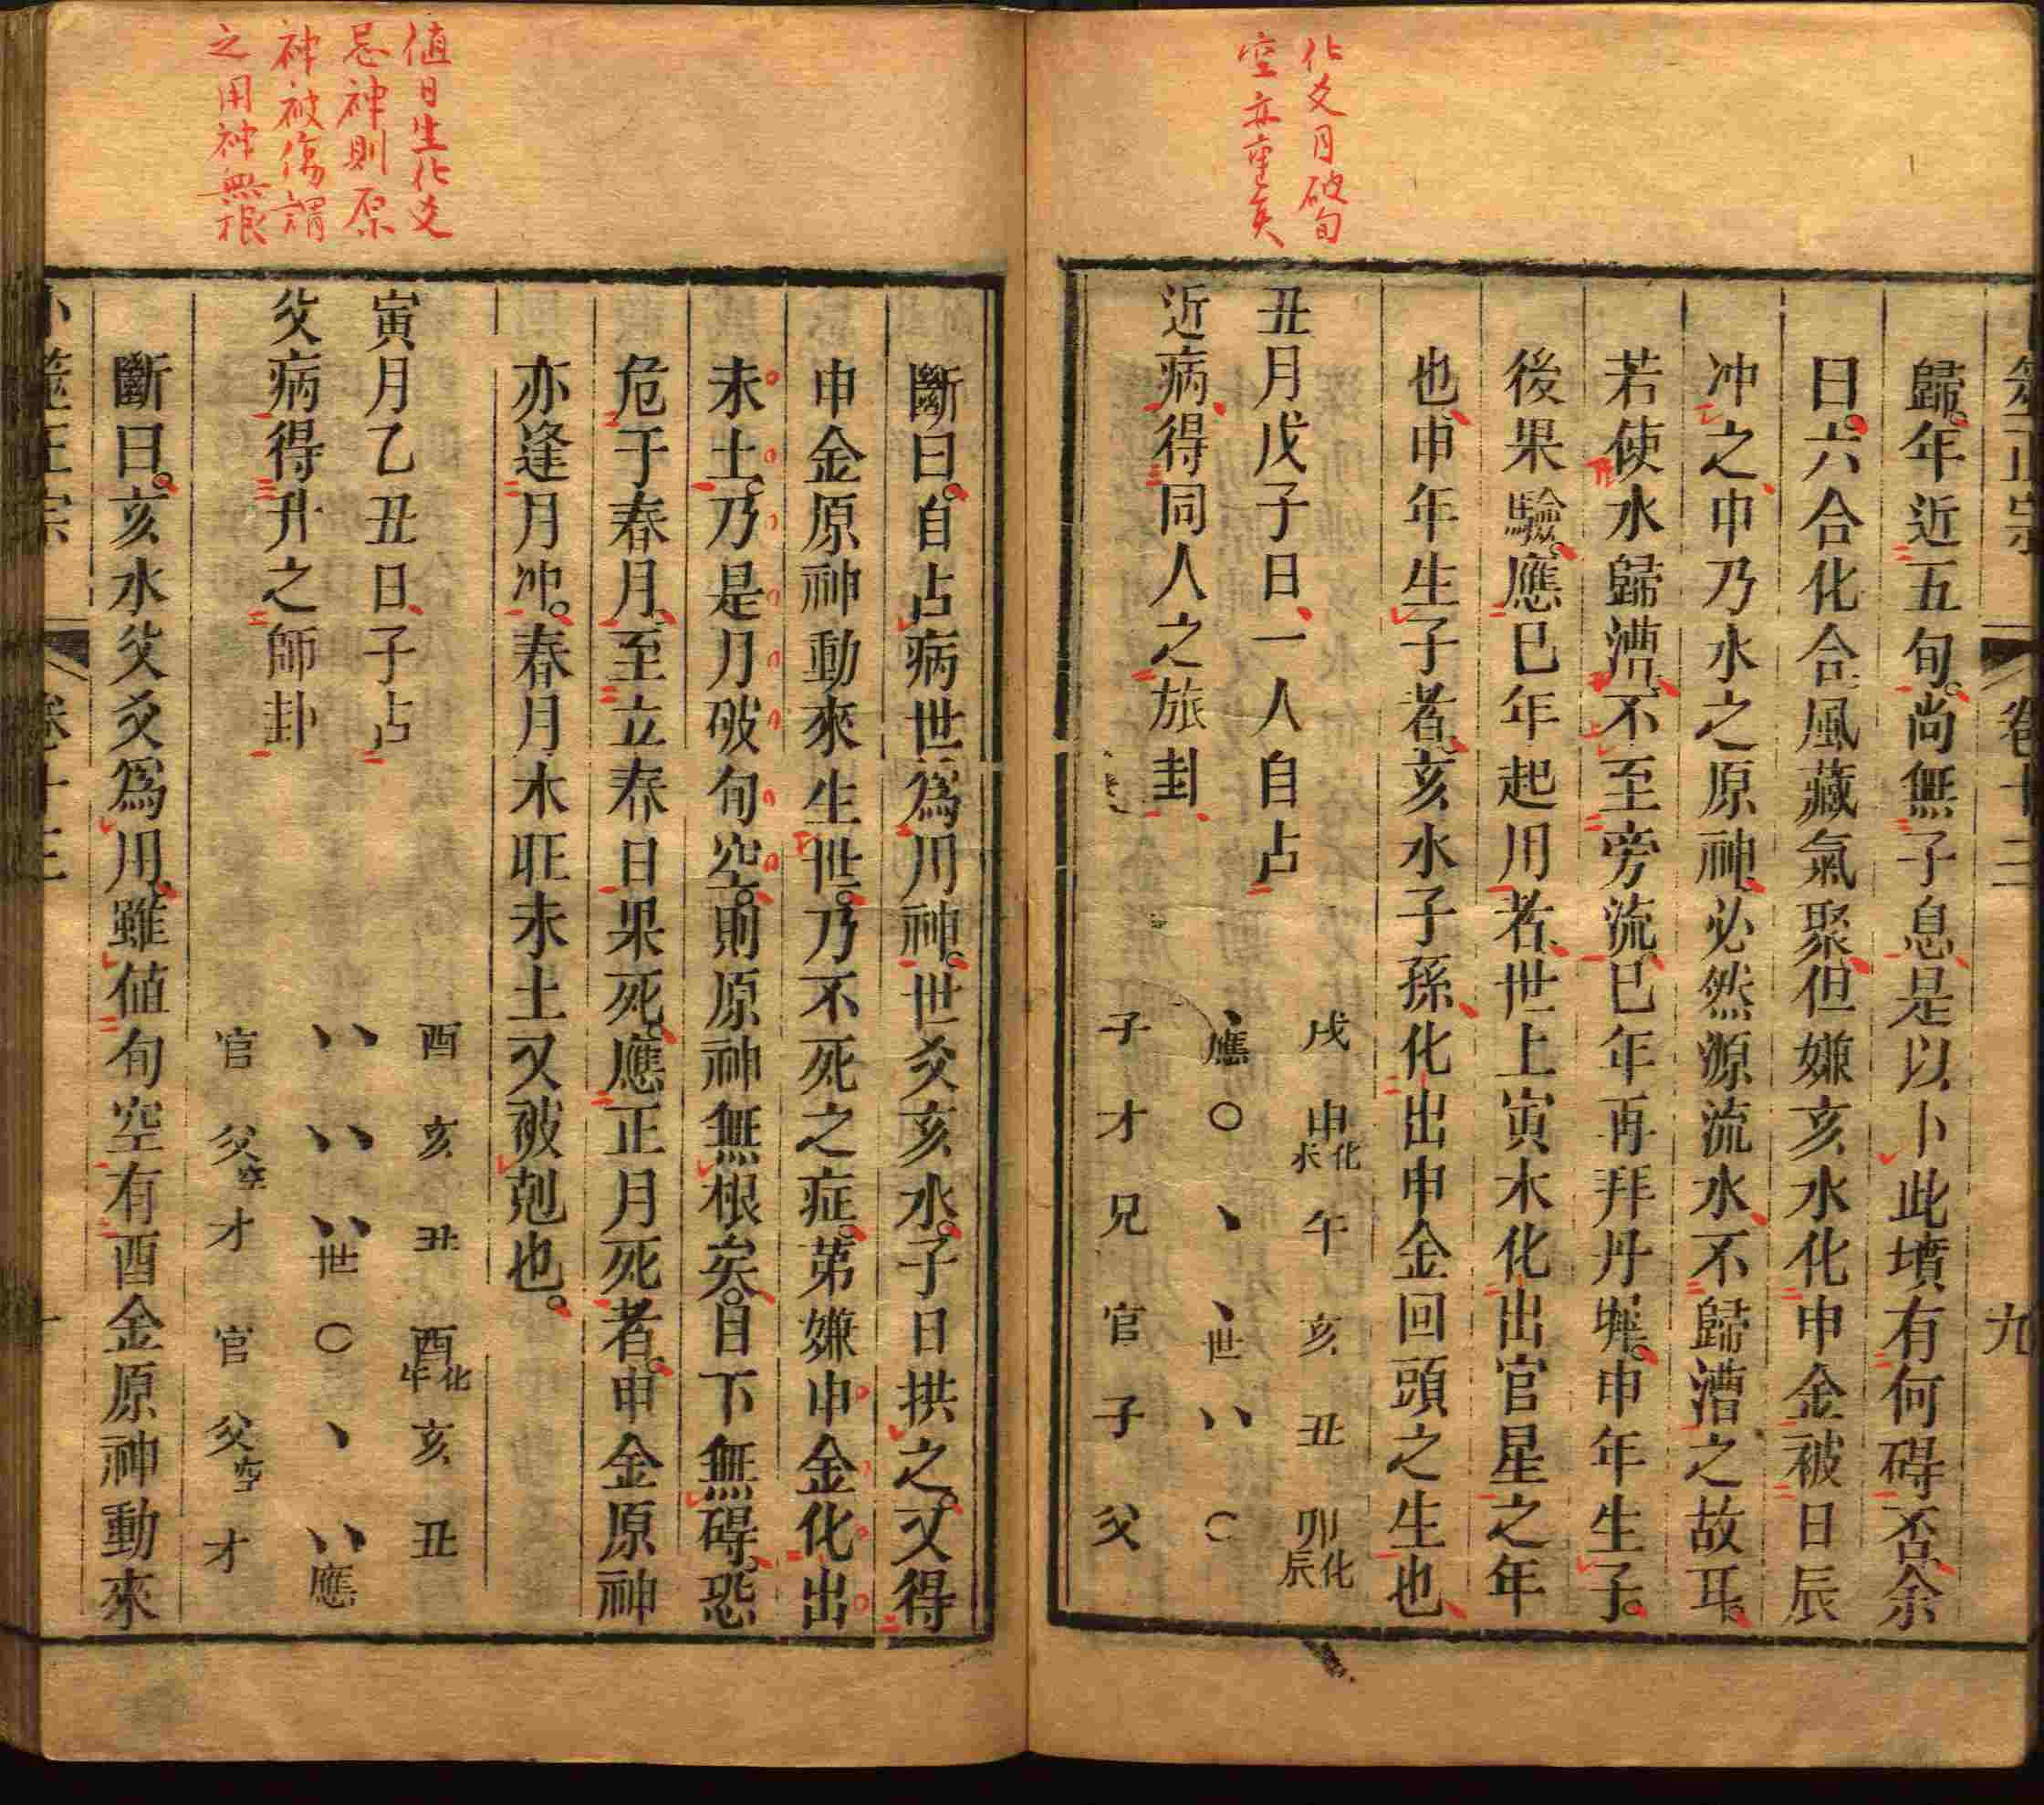 化爻月破旬
空亦重矣
歸年近五旬尚無子息是以卜此墳有何碍否余
曰六合化合風藏氣聚但嫌亥水化申金被日辰
冲之申乃水之原神必然源流水不歸漕之故耳
若使水歸漕不至旁流巳年再拜丹墀申年生子
後果驗應巳年起用者世上寅木化出官星之年
也申年生子者亥水子孫化出申金回頭之生也
丑月戊子日一人自占
近病得同人之旅卦
戌 申化未 午 亥 丑 卯化辰
、應 〇 、 、世 八 〇
子 才 兄 官 子 父
九
值日生化爻
忌神則原
神被傷謂
之用神無根
斷曰自占病世爲用神世爻亥水子日拱之又得
申金原神動來生世乃不死之症苐嫌申金化出
未土乃是月破旬空則原神無根矣目下無碍恐
危于春月至立春日果死應正月死者申金原神
亦逢月冲春月木旺未土又被剋也
寅月乙丑日子占
父病得升之師卦
酉 亥 丑 酉化午 亥 丑
八 八 八世 〇 、 八應
官 父空 才 官 父空 才
斷曰亥水父爻爲用雖值旬空有酉金原神動來